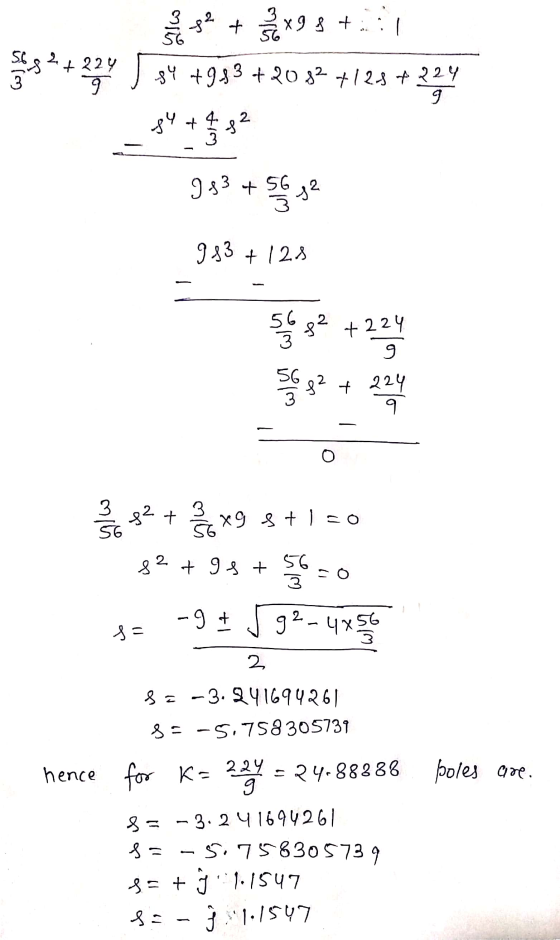 3/56 s² + 3/56 ×9 s + 1
56/3 s² + 224/9 ) s⁴ + 9s³ + 20s² + 12s + 224/9
s⁴ + 4/3 s²
− −
9s³ + 56/3 s²
9s³ + 12s
− −
56/3 s² + 224/9
56/3 s² + 224/9
− −
0
3/56 s² + 3/56 ×9 s + 1 = 0
s² + 9s + 56/3 = 0
s = (-9 ± √(9² - 4×56/3)) / 2
s = -3.241694261
s = -5.758305739
hence for K = 224/9 = 24.88888 poles are.
s = -3.241694261
s = -5.758305739
s = + j 1.1547
s = - j 1.1547